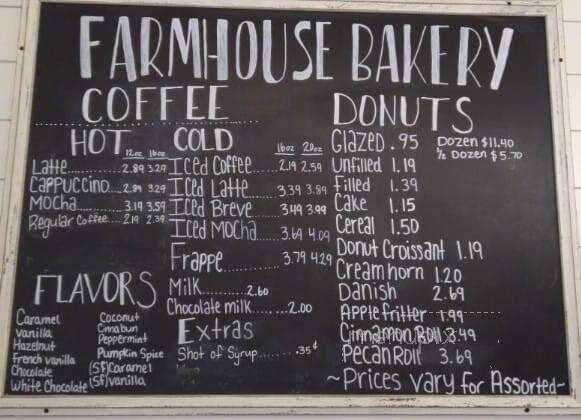 FARMHOUSE BAKERY
COFFEE
HOT
12oz 16oz
Latte 2.89 3.29
Cappuccino 2.89 3.29
Mocha 3.19 3.59
Regular Coffee 2.19 2.39
COLD
16oz 20oz
Iced Coffee 2.19 2.59
Iced Latte 3.39 3.89
Iced Breve 3.49 3.99
Iced Mocha 3.69 4.09
Frappe 3.79 4.29
Milk 2.60
Chocolate milk 2.00
Extras
Shot of Syrup .35¢
FLAVORS
Caramel
Vanilla
Hazelnut
French vanilla
Chocolate
White Chocolate
Coconut
Cinabun
Peppermint
Pumpkin Spice
(SF) Caramel
(SF) Vanilla
DONUTS
Glazed .95 Dozen $11.40
½ Dozen $5.70
Unfilled 1.19
Filled 1.39
Cake 1.15
Cereal 1.50
Donut Croissant 1.19
Cream horn 1.20
Danish 2.69
Apple fritter 1.99
Cinnamon Roll 3.49
Pecan Roll 3.69
~Prices vary for Assorted~